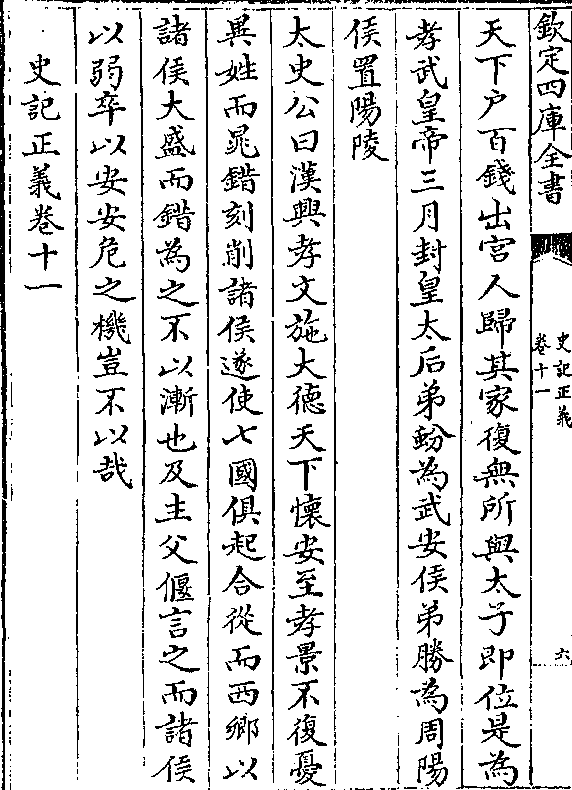 欽定四庫全書
史記正義
卷十一
六
天下户百錢出宮人歸其家復無所與太子即位是為
孝武皇帝三月封皇太后弟蚡為武安侯弟勝為周陽
侯置陽陵
太史公曰漢興孝文施大德天下懷安至孝景不復憂
異姓而鼂錯刻削諸侯遂使七國俱起合從而西鄉以
諸侯大盛而錯為之不以漸也及主父偃言之而諸侯
以弱卒以安安危之機豈不以哉
史記正義卷十一